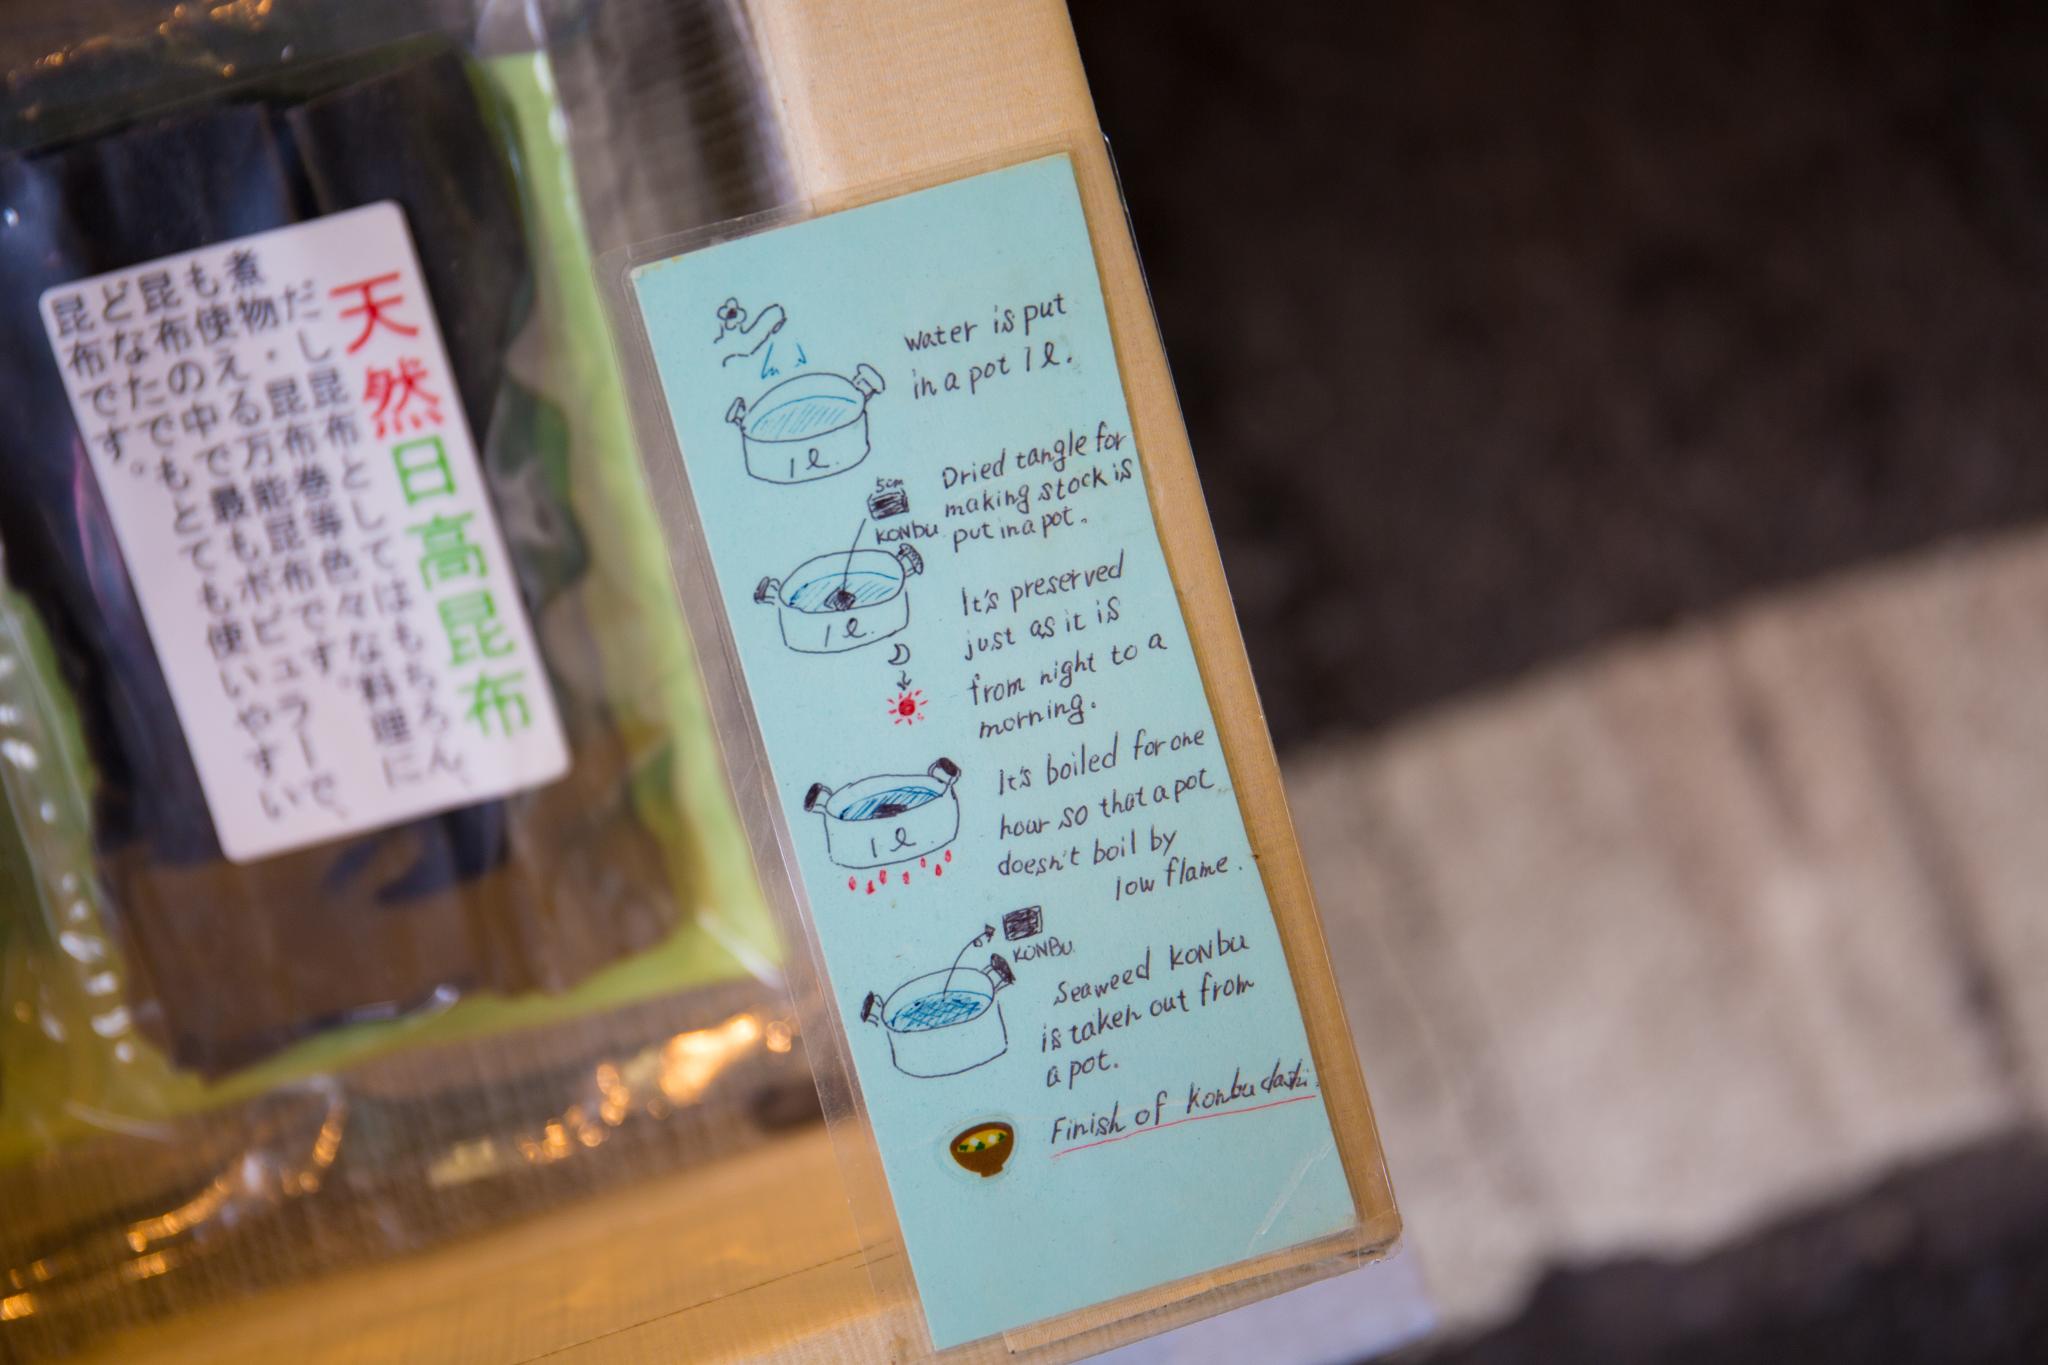 天然日高昆布
だし昆布としてはもちろん、
煮物・昆布巻等色々な料理に
も使える万能昆布です。
昆布の中で最もポピュラーで、
どなたでもとても使いやすい
昆布です。
water is put
in a pot 1ℓ.
1ℓ.
Dried tangle for
making stock is
put in a pot.
5cm
KONbU
1ℓ.
It's preserved
just as it is
from night to a
morning.
It's boiled for one
hour so that a pot
doesn't boil by
low flame.
1ℓ.
KONBU.
Seaweed KONbu
is taken out from
a pot.
Finish of konbudashi.